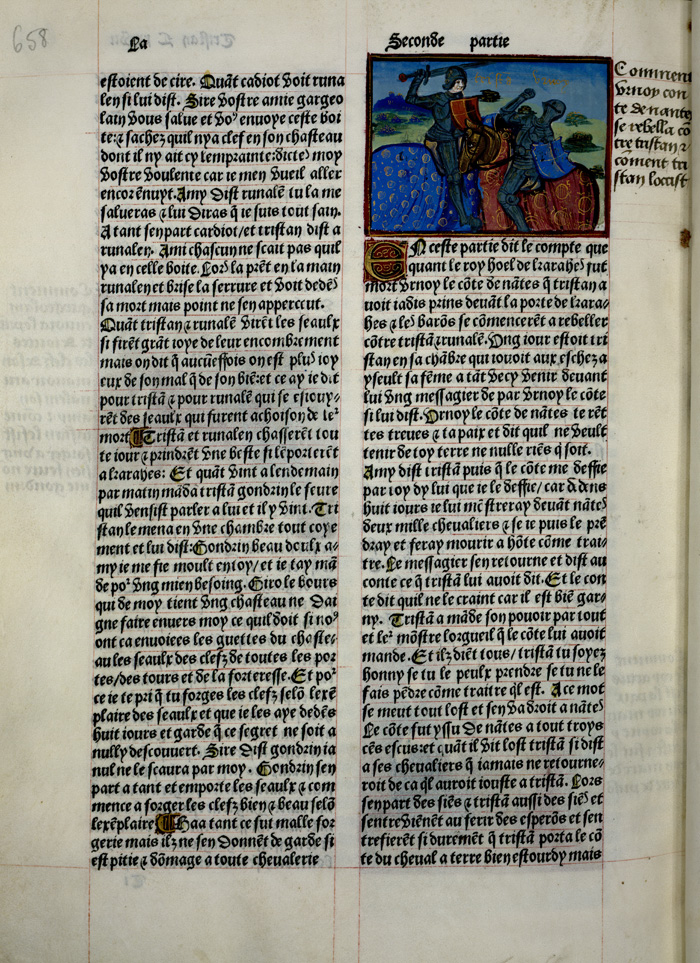 658
La
estoient de cire. Quãt cadiot voit runa
len si lui dist. Sire vostre amie gargeo
lain vous salue et voꝰ enuoye ceste boi
te: ⁊ sachez quil nya clef en son chasteau
dont il ny ait cy lemprainte: dictes moy
vostre voulente car ie men vueil aller
encor ẽnuyt. Amy dist runalẽ tu la me
salueras ⁊ lui diras q̃ ie suis tout sain.
A tant sen part cardiot / et tristan dist a
runalen. Ami chascun ne scait pas quil
ya en celle boite. Lors la prẽt en la main
runalen et brise la serrure et voit dedẽs
sa mort mais point ne sen apperceut.
Quãt tristan ⁊ runalẽ virẽt les seaulx
si firẽt grãt ioye de leur encombrement
mais on dit q̃ aucũeffois on est plus ioy
eux de son mal q̃ de son biẽ: et ce ay ie dit
pour tristã ⁊ pour runalẽ qui se esiouy-
rẽt des seaulx qui furent achoison de leꝛ
mort. Tristã et runalen chasserẽt tou
te iour ⁊ prindrẽt vne beste si lẽporterẽt
a lrarahes: Et quãt vint a lendemain
par matin mãda tristã gondrin le feure
quil vensist parler a lui et il y vint. Tri
stan le mena en vne chambre tout coye
ment et lui dist: Gondrin beau doulx a-
my ie me fie moult en toy / et ie tay mã
de poꝛ vng mien besoing. Giro le bours
qui de moy tient vng chasteau ne dai
gne faire enuers moy ce quil doit si noꝰ
ont ca enuoiees les guettes du chaste-
au les seaulx des clefz de toutes les por
tes / des tours et de la forteresse. Et poꝛ
ce ie te pri q̃ tu forges les clefz selõ lexẽ
plaire des seaulx et que ie les aye dedẽs
huit iours et garde q̃ ce segret ne soit a
nully descouuert. Sire dist gondrin ia
nul ne le scaura par moy. Gondrin sen
part a tant et emporte les seaulx ⁊ com
mence a forger les clefz bien ⁊ beau selõ
lexẽplaire. Haa tant ce fut malle for
gerie mais ilz ne sen donnẽt de garde si
est pitie ⁊ dõmage a toute cheualerie
Seconde partie
Comment
vrnoy con
te de nantes
se rebella cõ
tre tristan ⁊
coment tri
stan loccist
EN ceste partie dit le compte que
quant le roy hoel de lrarahes fut
mort vrnoy le cõte de nãtes q̃ tristan a
uoit iadis prins deuãt la porte de lrara-
hes ⁊ les barõs se cõmencerẽt a rebeller
cõtre tristã ⁊ runalẽ. Vng iour estoit tri
stan en sa chãbre qui iouoit aux eschez a
yseult sa fẽme a tãt vecy venir deuant
lui vng messagier de par vrnoy le cõte
si lui dist. Vrnoy le cõte de nãtes te rẽt
tes treues ⁊ ta paix et dit quil ne veult
tenir de toy terre ne nulle riẽs q̃ soit.
Amy dist tristã puis q̃ le cõte me deffie
par toy dy lui que ie le deffie / car dedẽs
huit iours ie lui mõstreray deuãt nãtes
deux mille cheualiers ⁊ se ie puis le prẽ
dray et feray mourir a hõte cõme trai-
tre. Le messagier sen retourne et dist au
conte ce q̃ tristã lui auoit dit. Et le con
te dit quil ne le craint car il est biẽ gar-
ny. Tristã a mãde son pouoir par tout
et leꝛ mõstre lorgueil q̃ le cõte lui auoit
mande. Et ilz diẽt tous / tristã tu soyez
honny se tu le peulx prendre se tu ne le
fais pẽdre cõme traitre q̃l est. A ce mot
se meut tout lost et sen va droit a nãtes
Le cõte fut yssu de nãtes a tout troys
cẽs escus: et quãt il vit lost tristã si dist
a ses cheualiers q̃ iamais ne retourne-
roit de ca q̃l auroit iouste a tristã. Lors
sen part des siẽs ⁊ tristã aussi des siẽs et
sentreviẽnẽt au ferir des esperõs et sen
trefierẽt si duremẽt q̃ tristã porta le cõ
te du cheual a terre bien estourdy mais